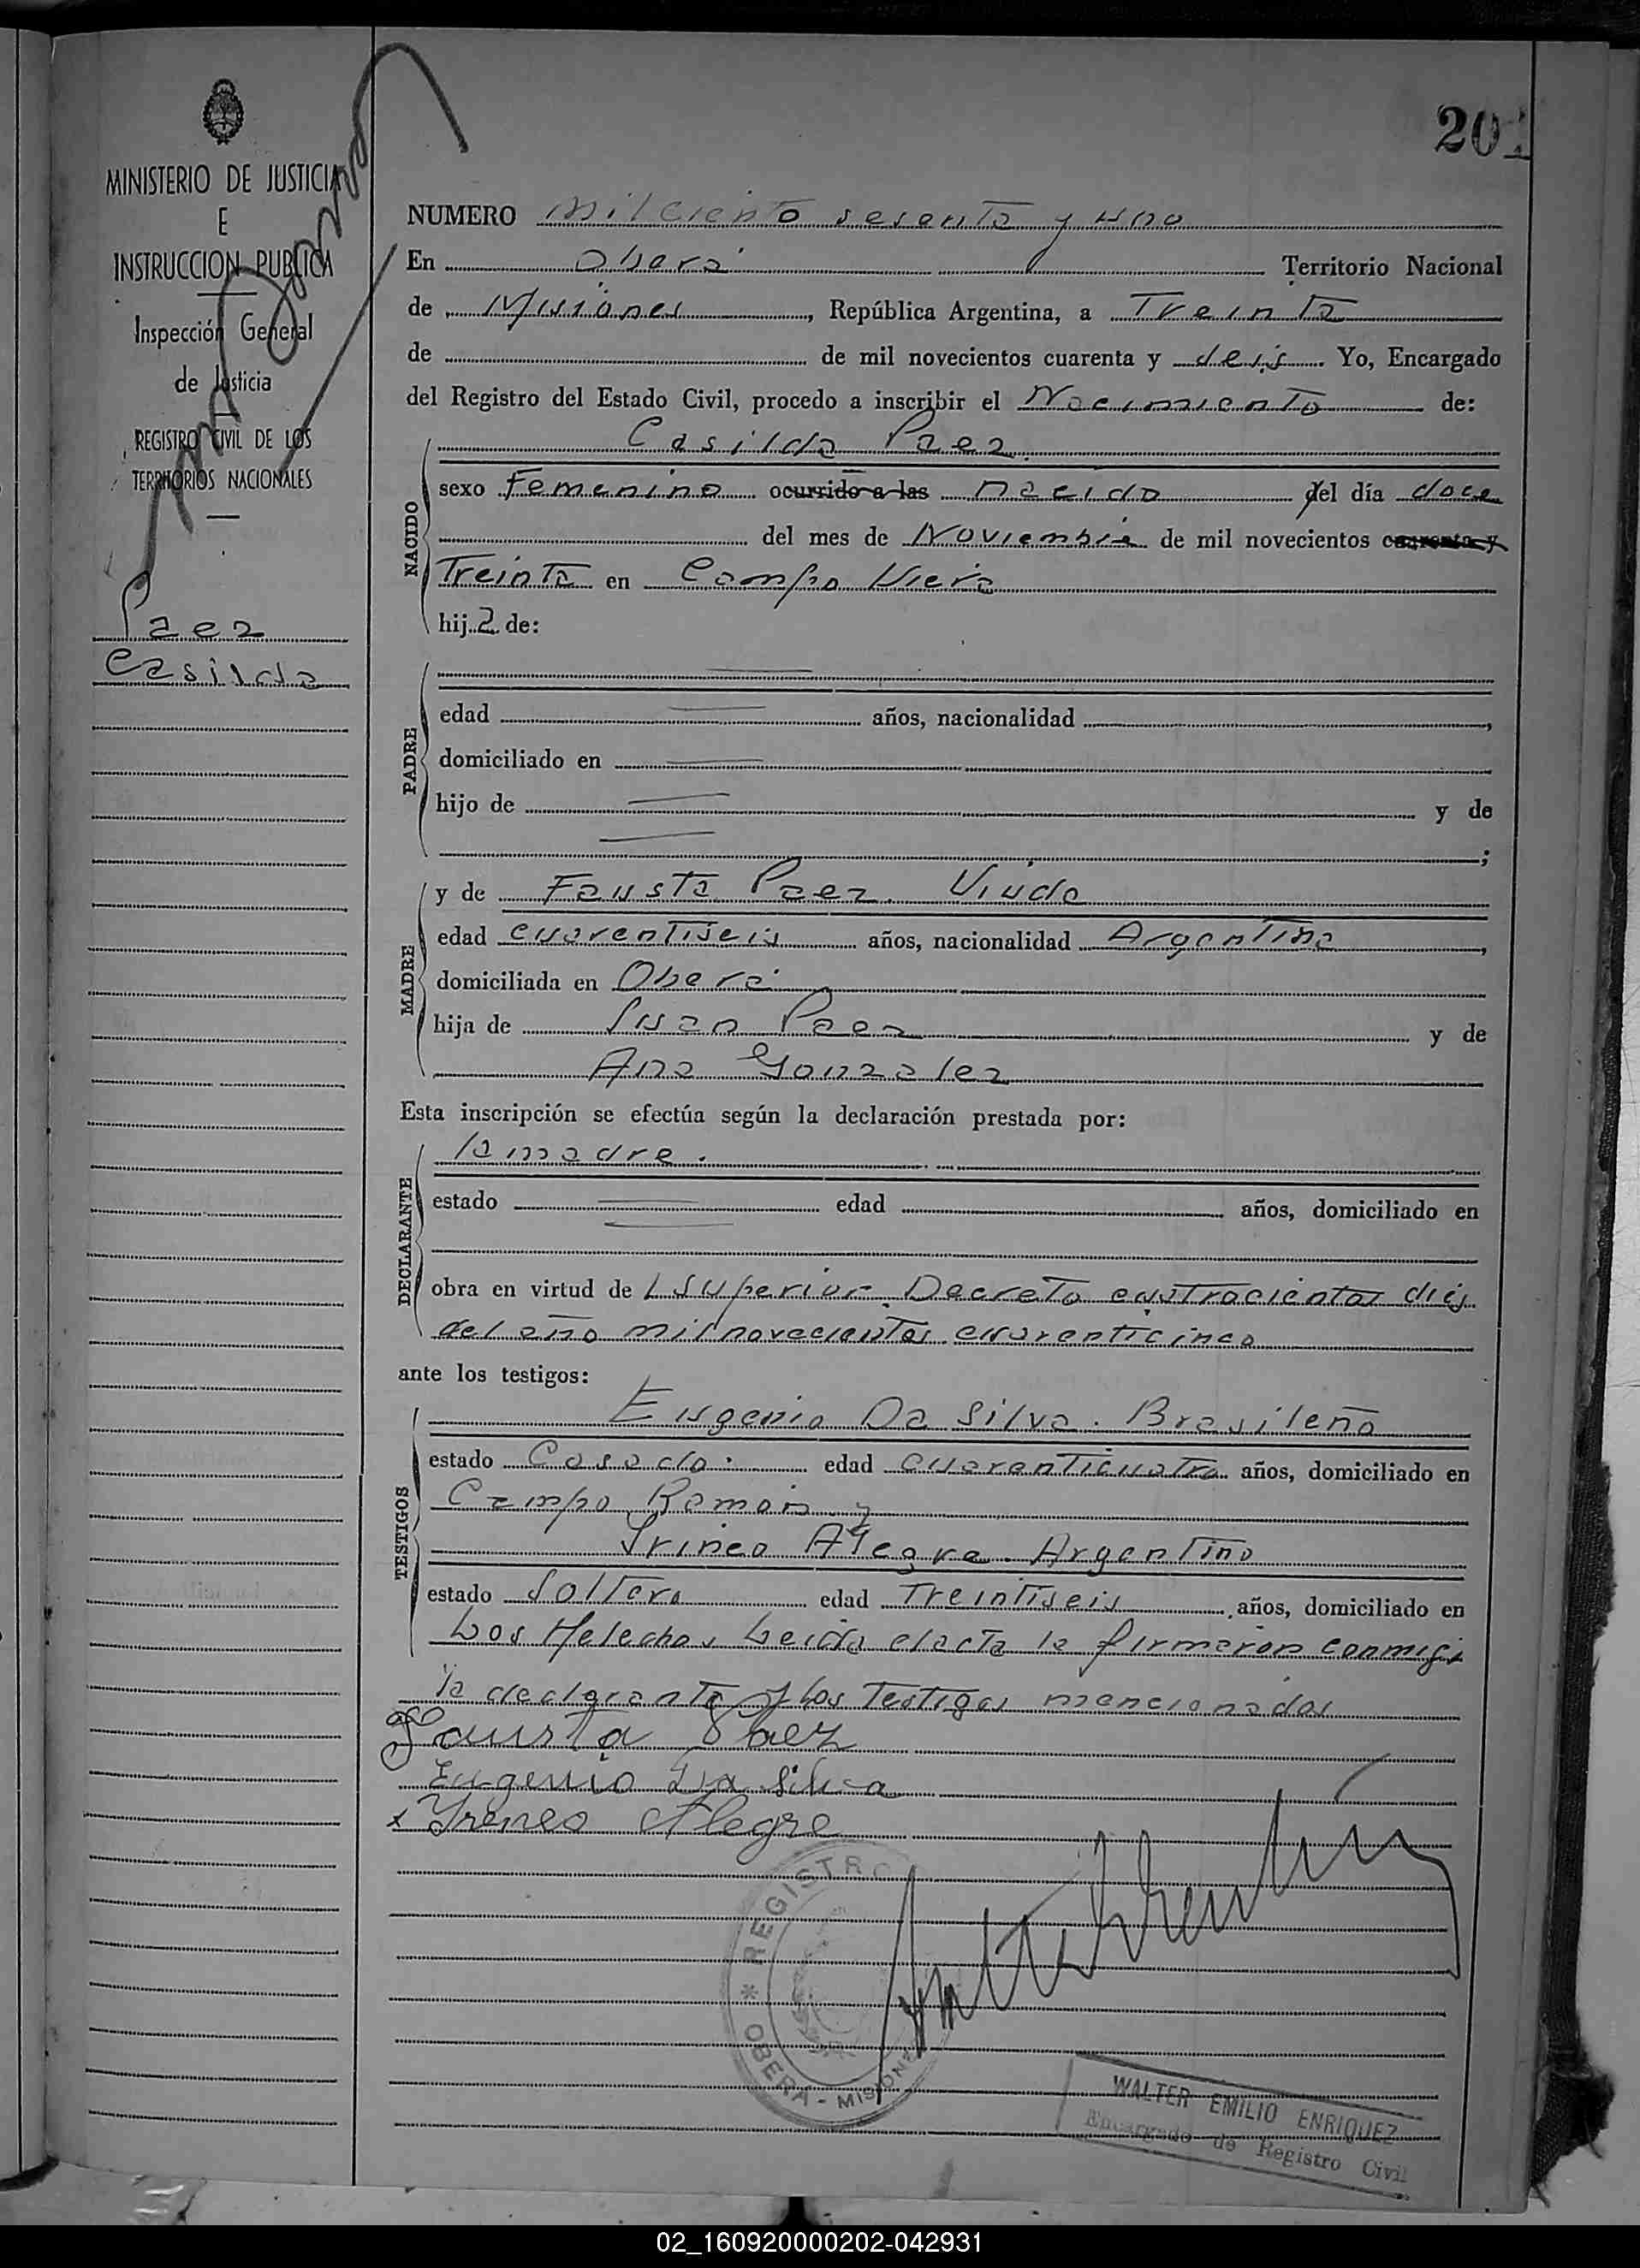 MINISTERIO DE JUSTICIA
E
INSTRUCCION PUBLICA
Inspección General
de Justicia
REGISTRO CIVIL DE LOS
TERRITORIOS NACIONALES
Paez
Casilda
20
NUMERO mil ciento sesenta y uno
En Oberá Territorio Nacional
de Misiones, República Argentina, a Treinta
de de mil novecientos cuarenta y seis. Yo, Encargado
del Registro del Estado Civil, procedo a inscribir el Nacimiento de:
Casilda Paez.
NACIDO
sexo Femenino ocurrido a las nacida del día doce
del mes de Noviembre de mil novecientos cuarenta y
Treinta en Campo Viera
hija de:
PADRE
edad años, nacionalidad ,
domiciliado en
hijo de y de
;
MADRE
y de Fausta Paez. Viuda
edad cuarentiseis años, nacionalidad Argentina,
domiciliada en Oberá
hija de Juan Paez y de
Ana Gonzalez
Esta inscripción se efectúa según la declaración prestada por:
DECLARANTE
la madre.
estado edad años, domiciliado en
obra en virtud de Superior Decreto cuatrocientos diés
del año mil novecientos cuarenticinco
ante los testigos:
TESTIGOS
Eugenio Da Silva. Brasileño
estado Casado. edad cuarenticuatro años, domiciliado en
Campo Ramon y
Irineo Alegre. Argentino
estado Soltero edad Treintiseis años, domiciliado en
Los Helechos. Leida el acta la firmaron conmigo
la declarante y los Testigos mencionados
Fausta Paez
Eugenio Da Silva
x Yreneo Alegre
REGISTRO
OBERA - MISIONES
WALTER EMILIO ENRIQUEZ
Encargado de Registro Civil
02_160920000202-042931